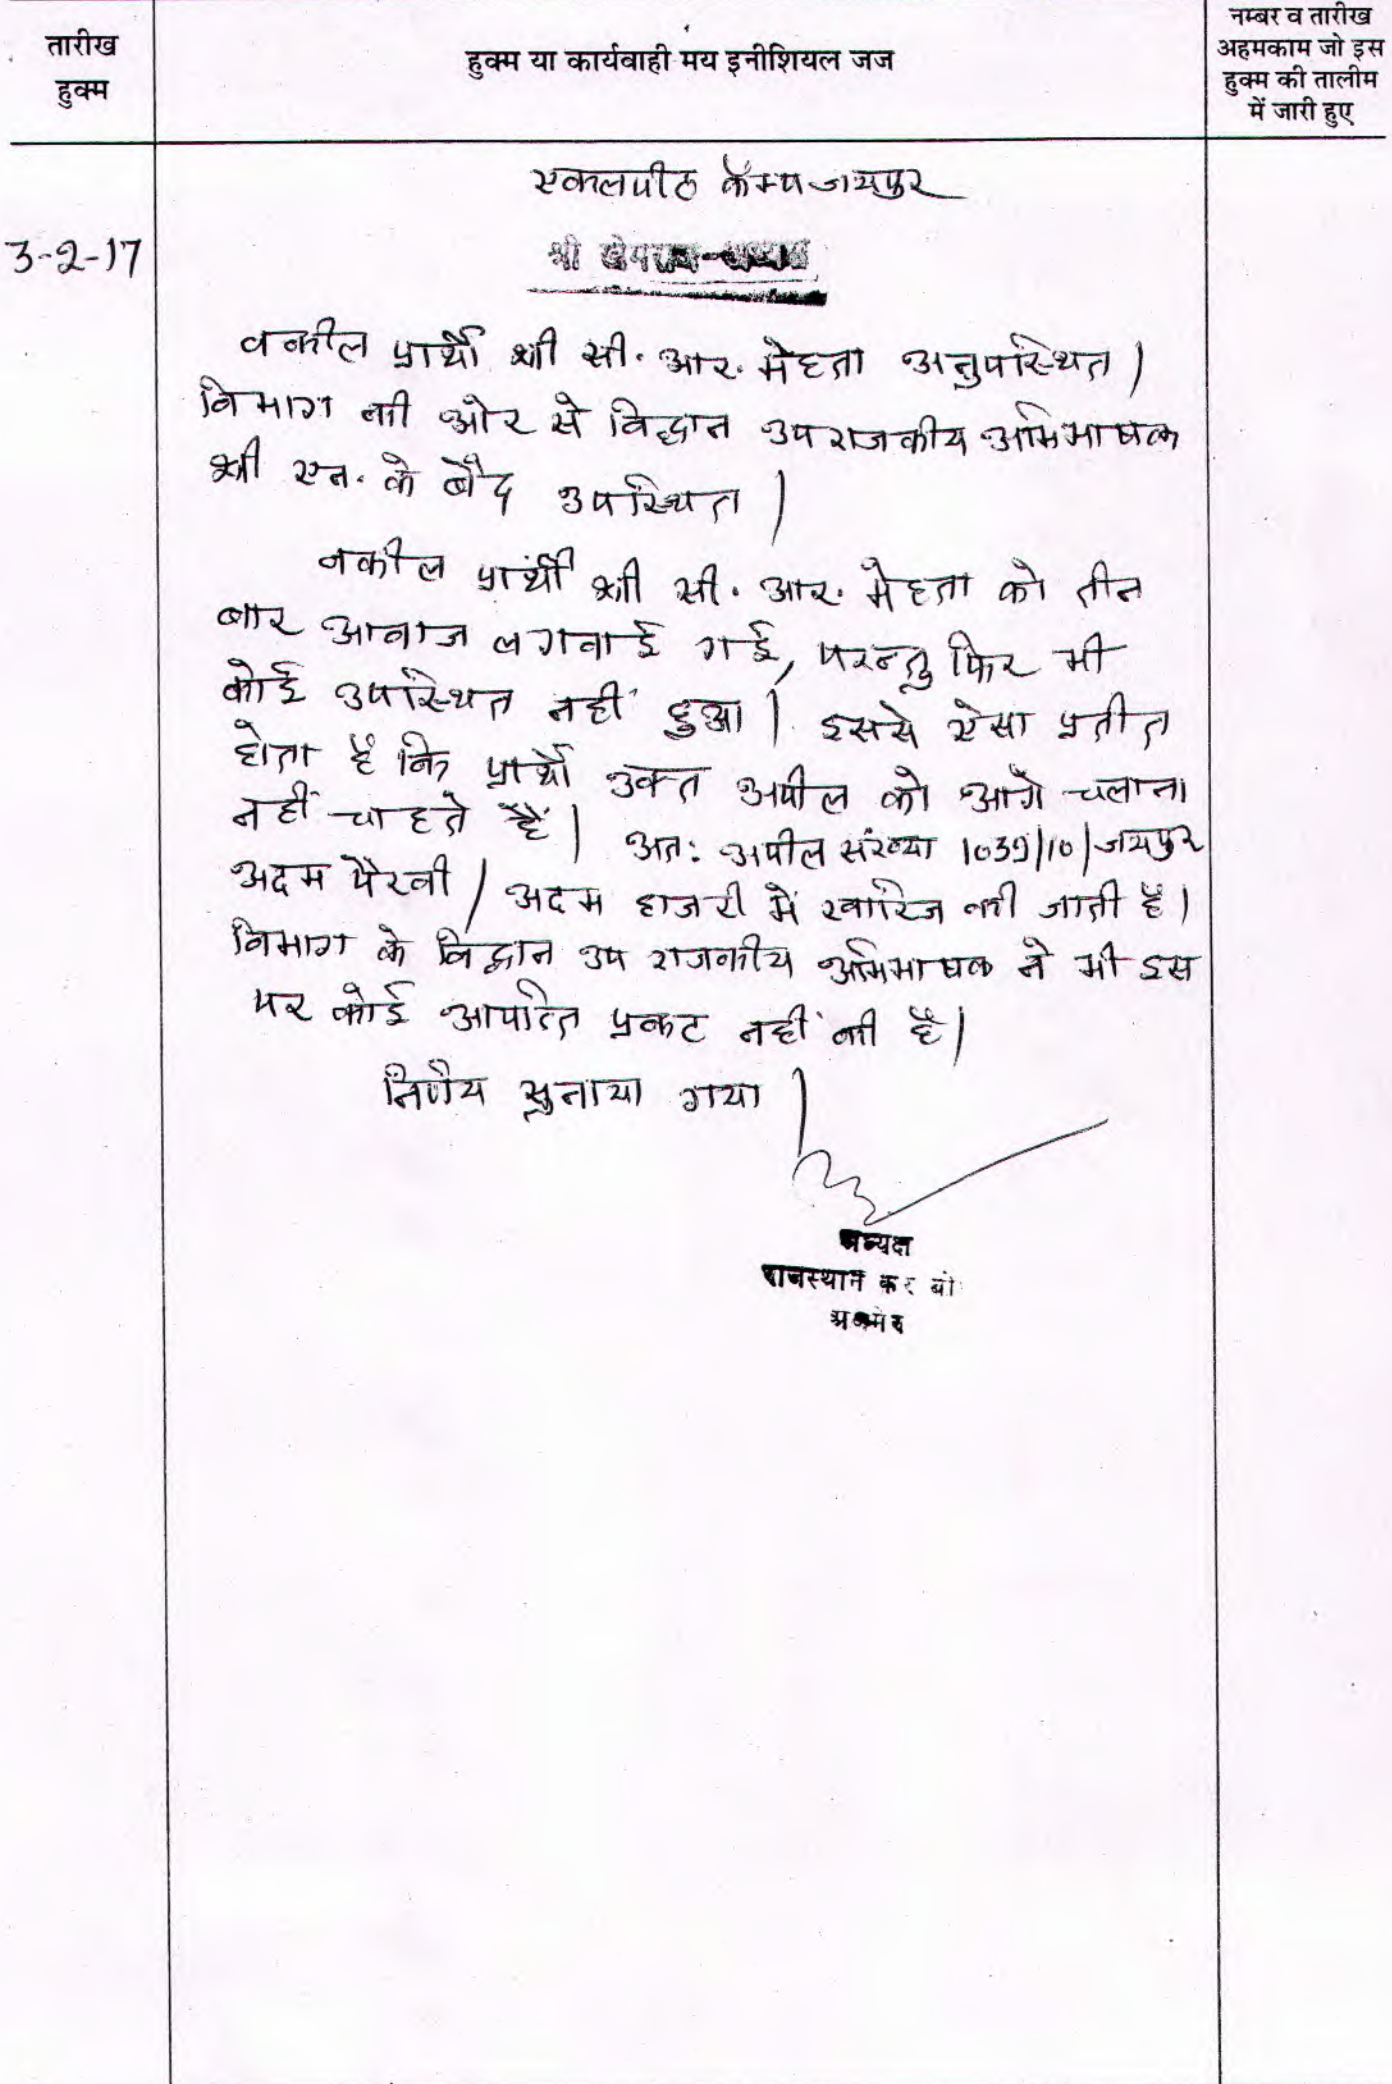 तारीख
हुक्म
हुक्म या कार्यवाही मय इनीशियल जज
नम्बर व तारीख
अहमकाम जो इस
हुक्म की तालीम
में जारी हुए
एकलपीठ कैम्प जयपुर
3-2-17
श्री
वकील प्रार्थी श्री सी. आर. मेहता अनुपस्थित।
विभाग की ओर से विद्धान उपराजकीय अभिभाषक
श्री एन. के बैद उपस्थित।
वकील प्रार्थी श्री सी. आर. मेहता को तीन
बार आवाज लगवाई गई, परन्तु फिर भी
कोई उपस्थित नहीं हुआ। इससे ऐसा प्रतीत
होता है कि प्रार्थी उक्त अपील को आगे चलाना
नहीं चाहते हैं। अतः अपील संख्या 1039/10/जयपुर
अदम पैरवी/अदम हाजरी में खारिज की जाती है।
विभाग के विद्वान उप राजकीय अभिभाषक ने भी इस
पर कोई आपत्ति प्रकट नहीं की है।
निर्णय सुनाया गया।
अध्यक्ष
राजस्थान कर बो
अजमेर